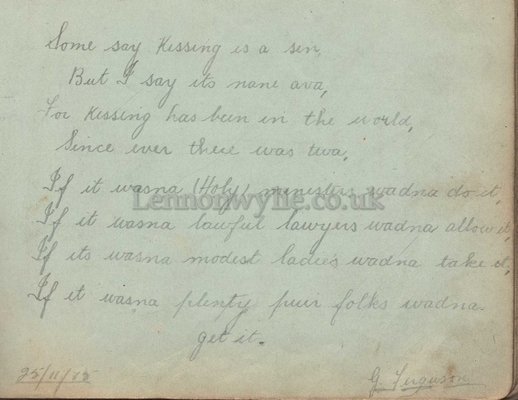 Some say Kissing is a sin,
But I say its nane ava,
For Kissing has been in the world,
Since ever there was twa,
If it wasna (Holy) ministers wadna do it,
Lennonwylie.co.uk
If it wasna lawful lawyers wadna allow it,
If its wasna modest ladies wadna take it,
If it wasna plenty puir folks wadna
get it.
25/11/05
G. Ferguson